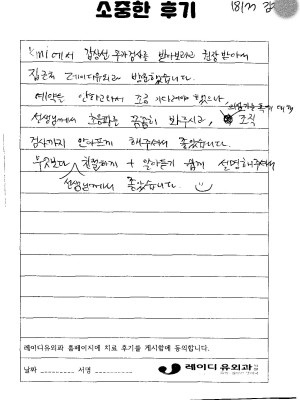 소중한 후기
kmi에서 갑상선 추가검사를 받아보라고 권장 받아서
집근처 레이디유외과 방문했습니다.
예약을 안하고와서 조금 기다려야 했으나
선생님께서 초음파를 꼼꼼히 봐주시고, 조직
검사까지 안아프게 해주셔서 좋았습니다.
무엇보다 친절하게 + 알아듣기 쉽게 설명해주셔서
선생님께서 좋았습니다.
레이디유외과 홈페이지에 치료 후기를 게시함에 동의합니다.
날짜 서명 레이디유외과